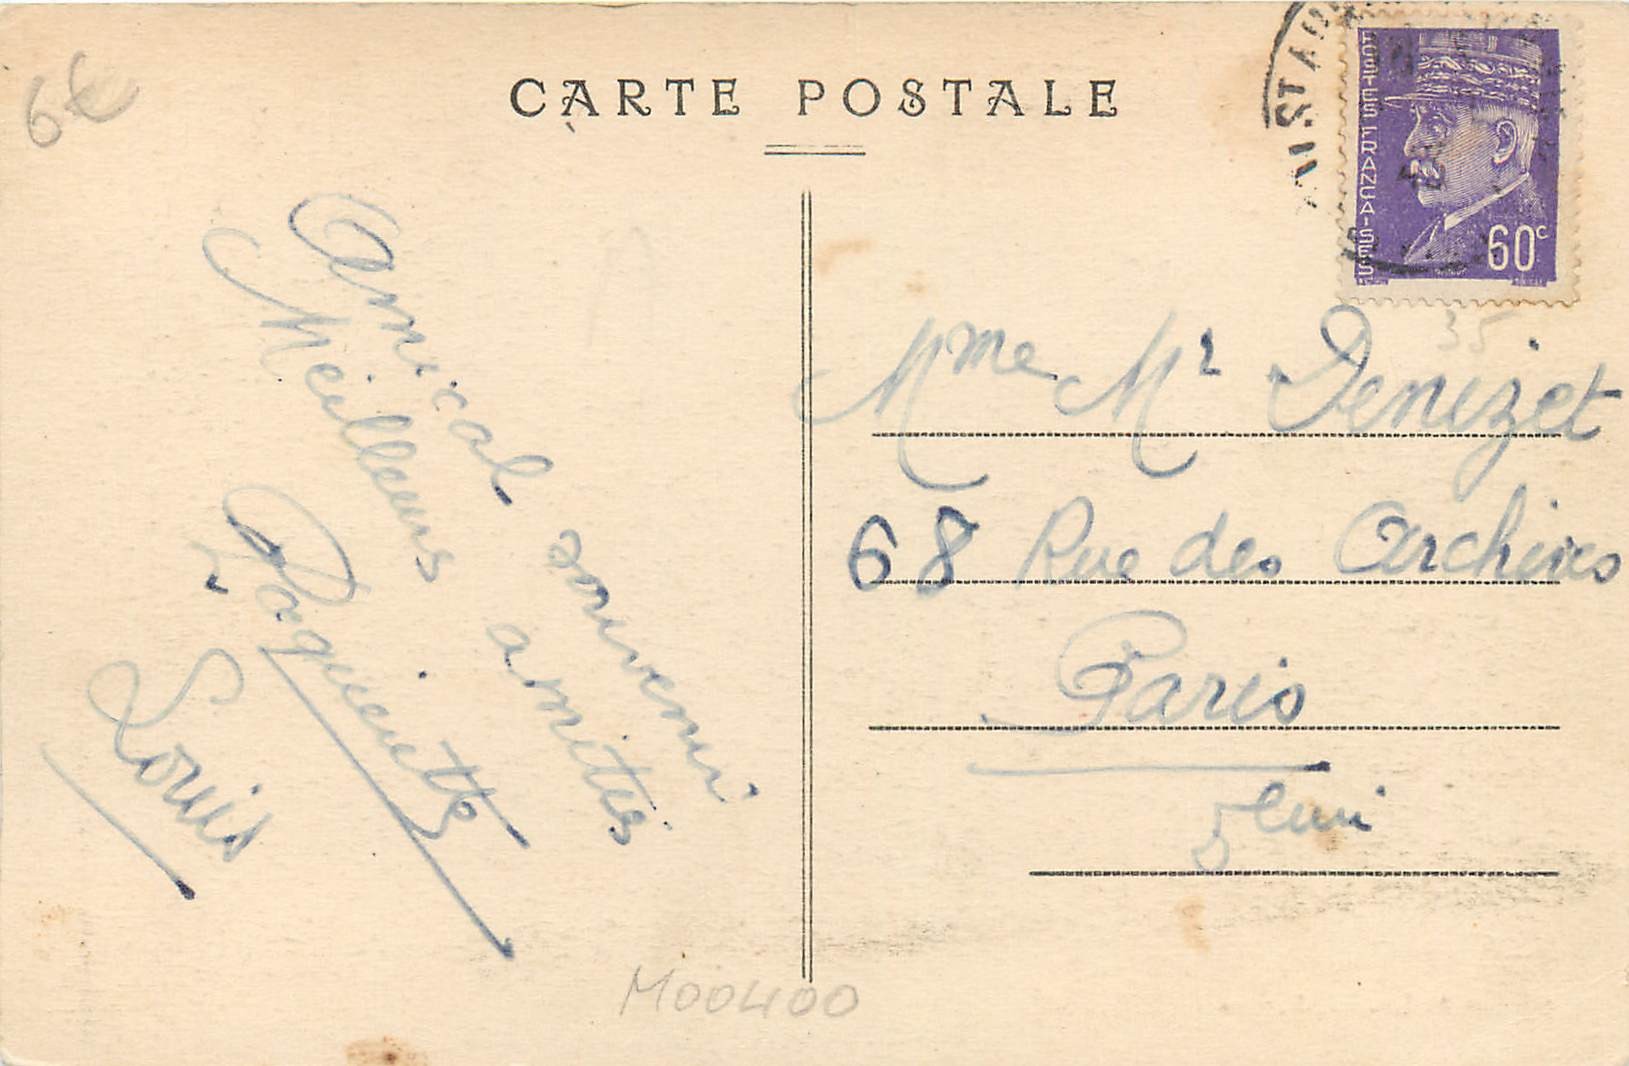 6€
CARTE POSTALE
POSTES FRANÇAISES
60c
35
Amical souvenir
Meilleurs amitiés
Paquerette
Louis
Mme Mr Denizet
68 Rue des Archives
Paris
M00400